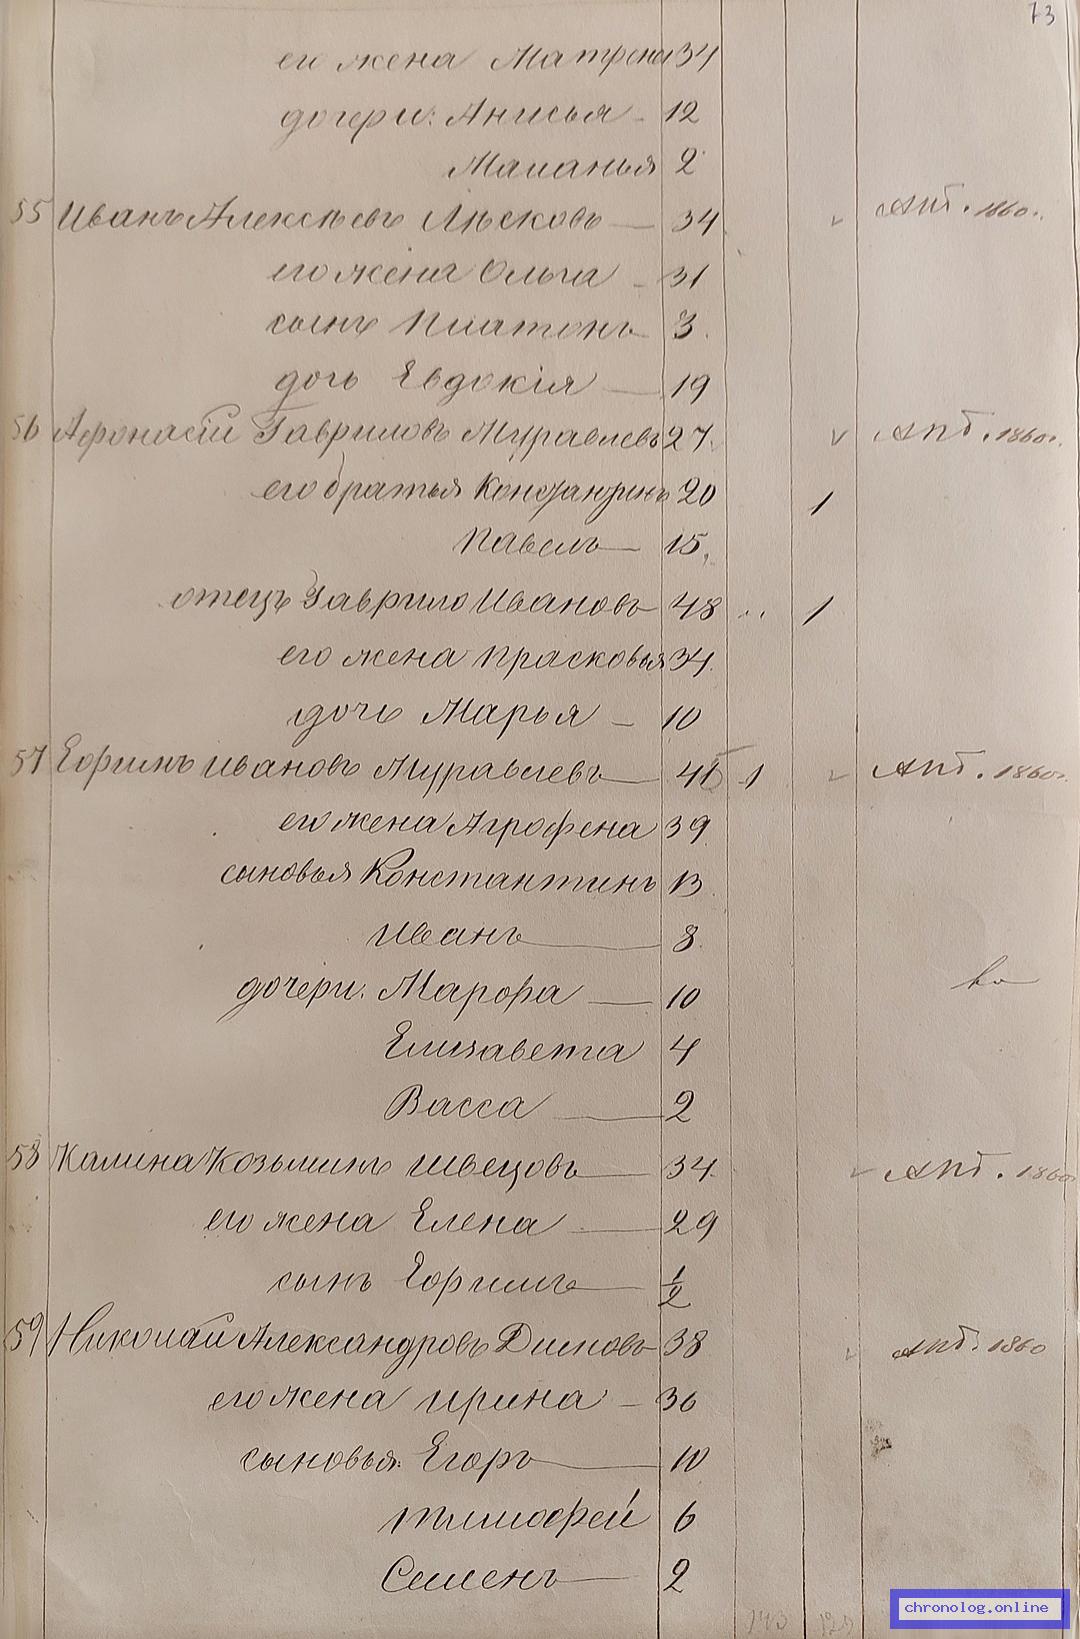 73
его жена Матрена 34
дочери: Анисья - 12
Маланья 2
55 Иванъ Алексѣевъ Лѣсковъ — 34 апр. 1860 г.
его жена Ольга - 31
сынъ Платонъ 3.
дочь Евдокія — 19
56 Афонасій Гавриловъ Муравлевъ 27. v 1860 г.
его братья Константинъ 20 1
Павелъ — 15,
отецъ Гаврило Ивановъ 48 1
его жена Прасковья 34.
дочь Марья - 10
57 Ефримъ Ивановъ Муравлевъ — 1 1860 г.
его жена Агрофена 39
сыновья Константинъ 13
Иванъ — 8.
дочери: Марфа — 10
Елизавета 4
Васса — 2
58 Калина Козьминъ Швецовъ — 34. 1860 г.
его жена Елена — 29
сынъ Ефримъ — 1/2
59 Николай Александровъ 38 1860
его жена Ирина - 36
сыновья: Егоръ — 10
Тимофей 6
Семенъ — 2
chronolog.online